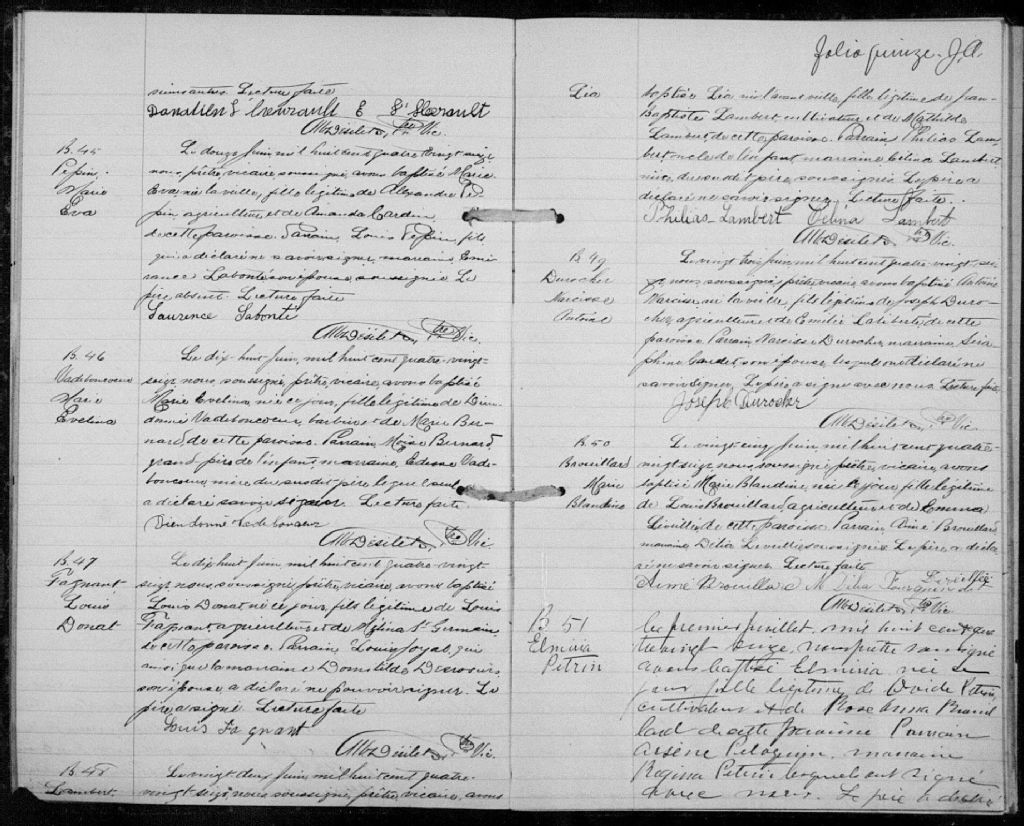 Lecture faite
Mdesilets, Ptre Vic.
B. 45
Pepin
Marie
Eva
Le douze juin mil huit cent quatre vingt seize
nous, prêtre, vicaire soussigné, avons baptisé Marie
Eva, née la veille, fille légitime de Alexandre Pé-
pin, agriculteur, et de Amanda Cardin
de cette paroisse. Parrain, Louis Pepin, fils
qui a déclaré ne savoir signer, marraine Emi
rance Labonté son épouse soussignée Le
père absent. Lecture faite
Laurence Labonté
Mdesilets, Ptre Vic.
B. 46
Vadeboncoeur
Marie
Evelina
Le dix-huit juin, mil huit cent quatre-vingt-
seize nous, soussigné, prêtre, vicaire, avons baptisé
Marie Evelina, née ce jour, fille légitime de Dieu-
donné Vadeboncoeur, barbier et de Marie Ber-
nard, de cette paroisse. Parrain, Moïse Bernard,
grand-père de l'enfant, marraine, Vade-
boncoeur, mère du susdit père lequel seul
a déclaré savoir signer. Lecture faite.
Dieudonné Vadeboncoeur
Mdesilets, Ptre Vic.
B. 47
Fagnant
Louis
Donat
Le dix huit juin, mil huit cent quatre-vingt
seize nous, soussigné, prêtre, vicaire, avons baptisé
Louis Donat né ce jour, fils légitime de Louis
Fagnant, agriculteur, et de Mélina St Germain,
de cette paroisse. Parrain, Louis Joyal, qui
ainsi que la marraine Domitilde Desrosiers,
son épouse, a déclaré ne pouvoir signer. Le
père a signé. Lecture faite
Louis Fagnant
Mdesilets, Ptre Vic.
B. 48
Lambert
Le vingt deux juin, mil huit cent quatre-
vingt seize, nous, soussigné, prêtre, vicaire, avons
Folio quinze. J.A.
Léa
baptisé Léa née l'avant veille, fille légitime de Jean-
Baptiste Lambert, cultivateur et de Mathilde
Lambert, de cette paroisse. Parrain Philias Lam-
bert, oncle de l'enfant, marraine Célina Lambert
père a
déclaré ne savoir signer. Lecture faite.
Philias Lambert Célina Lambert
Mdesilets, Ptre Vic.
B 49
Durocher
Narcisse
Antoine
Le vingt trois juin, mil huit cent quatre-vingt-sei-
ze nous, soussigné, prêtre, vicaire avons baptisé Antoine
Narcisse, né la veille, fils légitime de Joseph Duro-
cher, agriculteur et de Emélie Laliberté, de cette
paroisse. Parrain, Narcisse Durocher, marraine, Séra-
phine Gaudet, son épouse, lesquels ont déclaré ne
savoir signer. Le père a signé avec nous. Lecture faite
Joseph Durocher
Mdesilets, Ptre Vic.
B. 50
Brouillard
Marie
Blandine
Le vingt-cinq juin, mil huit cent quatre-
vingt seize, nous, soussigné, prêtre, vicaire, avons
baptisé Marie Blandine, née ce jour, fille légitime
de Louis Brouillard, agriculteur, et de Emma
Léveillée de cette paroisse. Parrain Aimé Brouillard,
marraine, Délia Léveillée, soussignés. Le père, a décla-
ré ne savoir signer. Lecture faite
Aimé Brouillard
Mdesilets, Ptre Vic.
B 51
Elmina
Petrin
Le premier juillet, mil huit cent qua-
tre vingt seize, nous prêtre soussigné
avons baptisé Elmina née ce
jour fille légitime de Ovide Petrin
cultivateur et de Rose Anna Brouil
lard de cette paroisse Parrain
Arsène Peloquin, marraine
Regina Petrin lesquels ont signé
avec nous. Le père a déclaré